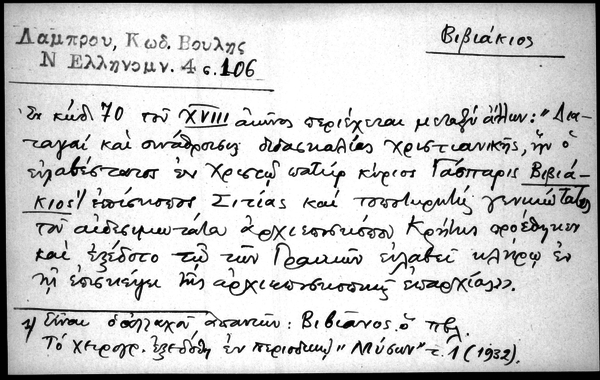 Λάμπρου, Κωδ. Βουλής
Ν Ελληνομν. 4 σ. 106
Βιβιάκιος
Ἐν κώδ 70 τοῦ XVIII αἰῶνος περιέχεται μεταξὺ ἄλλων: "Δια-
ταγαί καὶ συνάθροισις διδασκαλίας χριστιανικῆς, ἣν ὁ
εὐλαβέστατος ἐν Χριστῷ πατὴρ κύριος Γάσπαρις Βιβιά-
κιος¹⁾ ἐπίσκοπος Σιτίας καὶ τοποτηρητὴς γενικώτατος
τοῦ αἰδεσιμωτάτου ἀρχιεπισκόπου Κρήτης προέθηκεν
καὶ ἐξέδοτο τῷ τῶν Γραικῶν εὐλαβεῖ κλήρῳ ἐν
τῇ ἐπισκέψει τῆς ἀρχιεπισκοπικῆς ἐπαρχίας».
1) Εἶναι ὁ ἀλλαχοῦ ἀπαντῶν: Βιβιᾶνος. ὃ πβλ.
Τό χειρογρ. ἐξεδόθη ἐν περιοδικῷ "Μύσων" τ. 1 (1932).